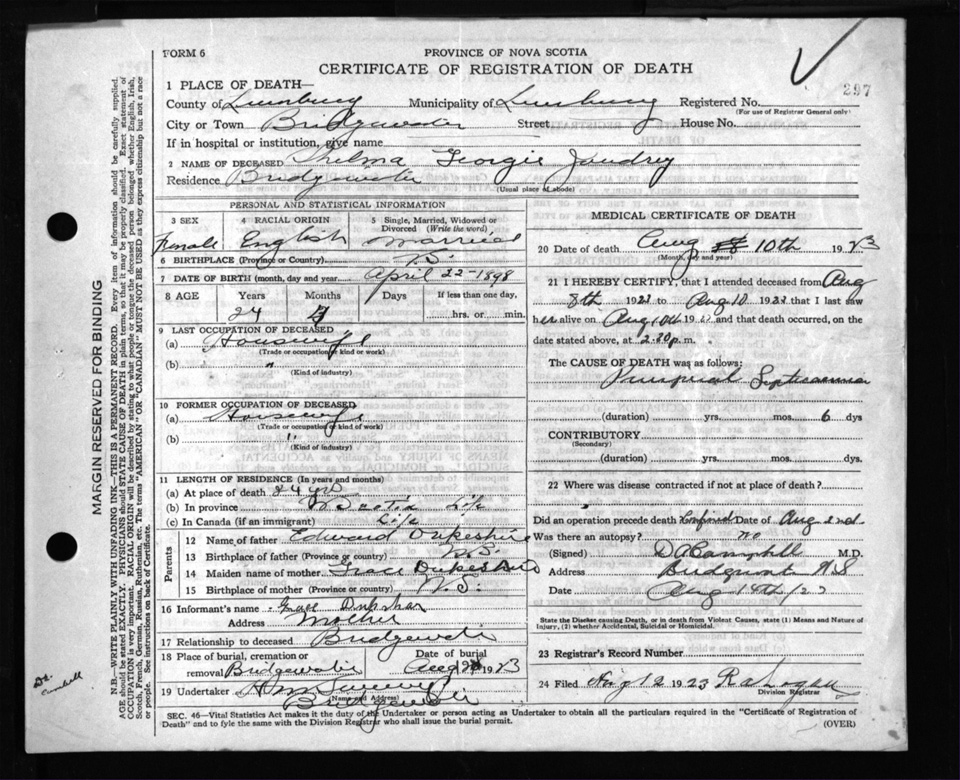 FORM 6
PROVINCE OF NOVA SCOTIA
CERTIFICATE OF REGISTRATION OF DEATH
297
1 PLACE OF DEATH
County of Lunenburg Municipality of Lunenburg Registered No.
(For use of Registrar General only)
City or Town Bridgewater Street House No.
If in hospital or institution, give name
2 NAME OF DECEASED Thelma Georgie Jaudrey
Residence Bridgewater
(Usual place of abode)
PERSONAL AND STATISTICAL INFORMATION
3 SEX 4 RACIAL ORIGIN 5 Single, Married, Widowed or Divorced (Write the word)
Female English Married
6 BIRTHPLACE (Province or Country)
7 DATE OF BIRTH (month, day and year) April 22-1898
8 AGE Years Months Days If less than one day,
24 hrs. or min.
9 LAST OCCUPATION OF DECEASED
(a) Housewife
(Trade or occupation or kind or work)
(b) "
(Kind of industry)
10 FORMER OCCUPATION OF DECEASED
(a) Housewife
(Trade or occupation or kind of work)
(b) "
(Kind of industry)
11 LENGTH OF RESIDENCE (In years and months)
(a) At place of death 24 yrs
(b) In province Life
(c) In Canada (if an immigrant) Life
Parents
12 Name of father Edward
13 Birthplace of father (Province or country) N.S.
14 Maiden name of mother Grace
15 Birthplace of mother (Province or country) N.S.
16 Informant's name
Address Mother
17 Relationship to deceased Bridgewater
18 Place of burial, cremation or removal Bridgewater Date of burial Aug 1923
19 Undertaker
(Name and Address)
Bridgewater
MEDICAL CERTIFICATE OF DEATH
20 Date of death Aug 10th 1923
(Month, day and year)
21 I HEREBY CERTIFY, that I attended deceased from Aug
8th 1923 to Aug 10 1923 that I last saw
her alive on Aug 10th 1923 and that death occurred, on the
date stated above, at 2.30 p. m.
The CAUSE OF DEATH was as follows:
Puerperal Septicaemia
(duration) yrs. mos. 6 dys
CONTRIBUTORY
(Secondary)
(duration) yrs. mos. dys.
22 Where was disease contracted if not at place of death?
Did an operation precede death Confined Date of Aug 2nd
Was there an autopsy? no
(Signed) D A Campbell M.D.
Address Bridgewater N S
Date Aug /23
State the Disease causing Death, or in death from Violent Causes, state (1) Means and Nature of Injury, (2) whether Accidental, Suicidal or Homicidal.
23 Registrar's Record Number
24 Filed Aug 12 1923
Division Registrar
SEC. 46—Vital Statistics Act makes it the duty of the Undertaker or person acting as Undertaker to obtain all the particulars required in the "Certificate of Registration of
Death" and to fyle the same with the Division Registrar who shall issue the burial permit.
(OVER)
MARGIN RESERVED FOR BINDING
N.B.—WRITE PLAINLY WITH UNFADING INK—THIS IS A PERMANENT RECORD. Every item of information should be carefully supplied.
AGE should be stated EXACTLY. PHYSICIANS should STATE CAUSE OF DEATH in plain terms, so that it may be properly classified. Exact statement of
OCCUPATION is very important. RACIAL ORIGIN will be described by stating to what people or tongue the deceased person belonged whether English, Irish,
Scotch, French, German, Russian, Ruthenian, etc. The terms "AMERICAN" OR "CANADIAN" MUST NOT BE USED as they express citizenship but not a race
or people. See instructions on back of Certificate.
Dr. Campbell